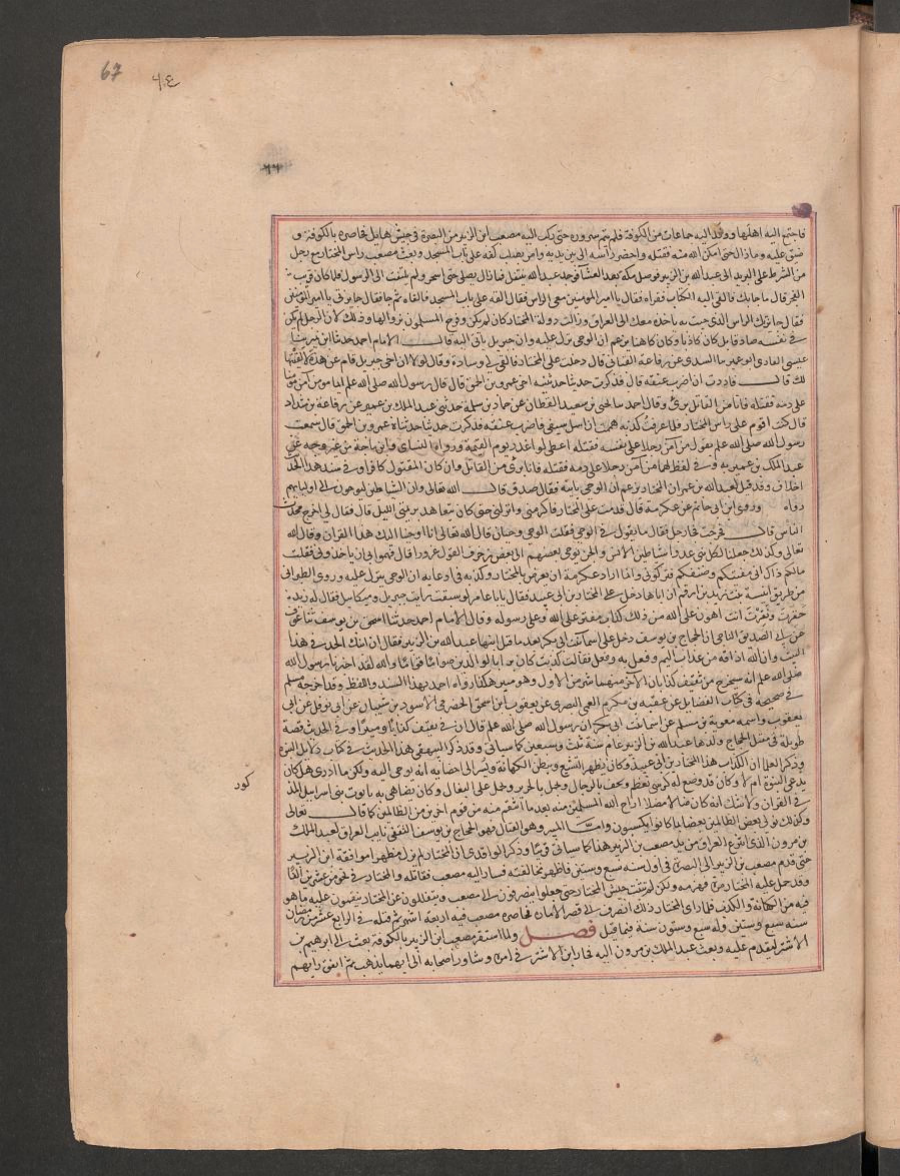 67
فاجتمع اليه اهلها ووفد اليه جماعات من الكوفة فلم يتم سروره حتى ركب اليه مصعب ابن الزبير من البصرة في جيش هايل فحاصره بالكوفة و
ضيق عليه وما زال حتى امكن الله منه فقتله واحضر راسه الى بين يديه وامر بصلب كفه على باب المسجد وبعث مصعب راس المختار مع رجل
من الشرط على البريد الى عبد الله بن الزبير فوصل مكة بعد العشا فوجد عبد الله يتنفل فما زال يصلي حتى اسحر ولم يلتفت الى الرسول فلما كان قريب
الفجر قال ما جا بك فالقى اليه الكتاب فقراه فقال يا امير المومنين معي الراس فقال القه على باب المسجد فالقاه ثم جا فقال جايزتي يا امير المومنين
فقال جايزتك الراس الذي جيت به تاخذه معك الى العراق وزالت دولة المختار كان لم يكن وفرح المسلمون بزوالها وذلك لان الرجل لم يكن
في نفسه صادقا بل كان كاذبا وكان كاهنا يزعم ان الوحي ينزل عليه وان جبريل ياتي اليه قال الامام احمد حدثنا ابن نمير ثنا
عيسى القاري ابو عمير ما السدي عن رفاعة القتباني قال دخلت على المختار فالقى لي وسادة وقال لولا ان اخي جبريل قام عن هذه لالقيتها
لك قال فاردت ان اضرب عنقه قال فذكرت حديثا حدثنيه اخي عمرو بن الحمق قال قال رسول الله صلى الله علم ايما مومن امن مومنا
على دمه فقتله فانا من القاتل برئ وقال احمد ما يحيى بن سعيد القطان عن حماد بن سلمة حدثني عبد الملك بن عمير عن رفاعة بن شداد
قال كنت اقوم على راس المختار فلما عرفت كذبه هممت ان اسل سيفي فاضرب عنقه فذكرت حديثا حدثناه عمرو بن الحمق قال سمعت
رسول الله صلى الله علم يقول من امن رجلا على نفسه فقتله اعطي لوا غدر يوم القيمة ورواه النساي وابن ماجة من غير وجه عن
عبد الملك بن عمير به وفي لفظ لهما من امن رجلا على دمه فقتله فانا برئ من القاتل وان كان المقتول كافرا وفي سند هذا الحديث
اختلاف وقد قيل لعبد الله بن عمر ان المختار يزعم ان الوحي ياتيه فقال صدق قال الله تعالى وان الشياطين ليوحون الى اوليائهم
رواه وروى ابن ابي حاتم عن عكرمة قال قدمت على المختار فاكرمني وانزلني حتى كان يتعاهد مبيتي بالليل قال فقال لي اخرج فحدث
الناس قال فخرجت فجا رجل فقال ما تقول في الوحي فقلت الوحي وحيان قال الله تعالى انا اوحينا اليك هذا القران وقال الله
تعالى وكذلك جعلنا لكل نبي عدوا شياطين الانس والجن يوحي بعضهم الى بعض زخرف القول غرورا قال فهموا بي ان ياخذوني فقلت
مالكم ذاك اني مفتيكم وضيفكم فتركوني وانما اراد عكرمة ان يعرض بالمختار وكذبه في ادعايه ان الوحي ينزل عليه وروى الطبراني
من طريق انيسة بنت زيد بن ارقم ان اباها دخل على المختار بن ابي عبيد فقال يابا عامر لو سبقت رايت جبريل وميكايل فقال له زيد
حقرت ونقرت انت اهون على الله من ذلك كذاب مفتر على الله وعلى رسوله وقال الامام احمد حدثنا اسحق بن يوسف ثنا
عن ابي الصديق الناجي ان الحجاج بن يوسف دخل على اسما بنت ابي بكر بعد ما قتل ابنها عبد الله بن الزبير فقال ان ابنك الحد في هذا
البيت وان الله اذاقه من عذاب اليم وفعل به وفعل فقالت كذبت كان برا بالوالدين صواما قواما والله لقد اخبرنا رسول الله
صلى الله علم انه سيخرج من ثقيف كذابان الاخر منهما شر من الاول وهو مبير هكذا رواه احمد بهذا السند واللفظ وقد اخرجه مسلم
في صحيحه في كتاب الفضايل عن عقبة بن مكرم العمي البصري عن يعقوب بن اسحق الحضرمي ما الاسود بن شيبان عن ابي نوفل عن ابي
يعقوب واسمه معوية بن مسلم عن اسما بنت ابي بكر ان رسول الله صلى الله علم قال ان في ثقيف كذابا ومبيرا وفي الحديث قصة
طويلة في مقتل الحجاج ولدها عبد الله بن الزبير عام سنة ثلث وسبعين كما سياتي وقد ذكر البيهقي هذا الحديث في كتاب دلايل النبوة
وذكر العلما ان الكذاب هذا المختار بن ابي عبيد وكان يظهر التشيع ويبطن الكهانة ويسر الى اخصايه انه يوحى اليه ولكن ما ادري هل كان
يدعي النبوة ام لا وكان قد وضع له كرسي يعظم ويحف بالرجال وجلل بالحرير وحمل على البغال وكان يضاهي به تابوت بني اسرايل المذكور
في القران ولا شك انه كان ضالا مضلا اراح الله المسلمين منه بعد ما انتقم منه من قوم اخرين من الظالمين كما قال تعالى
وكذلك نولي بعض الظالمين بعضا بما كانوا يكسبون واما المبير وهو القتال فهو الحجاج بن يوسف الثقفي نايب العراق لعبد الملك
بن مرون الذي انتزع العراق من يد مصعب بن الزبير هذا كما سياتي قريبا وذكر الواقدي ان المختار لم يزل مظهرا موافقة ابن الزبير
حتى قدم مصعب بن الزبير الى البصرة في اول سنة سبع وستين فاظهر مخالفته فسار اليه مصعب فقاتله والمختار في نحو من عشرين الفا
وقد حمل عليه المختار مرة فهزمه ولكن لم يثبت جيش المختار حتى جعلوا ينصرفون الى مصعب ويتفللون عن المختار ينقمون عليه ما هو
فيه من الكهانة والكذب فلما راى المختار ذلك انصرف الى قصر الامان فحاصره مصعب فيه اربعة اشهر ثم قتله في الرابع عشر من رمضان
سنة سبع وستين وله سبع وستون سنة فيما قيل فصل ولما استقر مصعب ابن الزبير بالكوفة بعث الى ابرهيم بن
الاشتر ليقدم عليه وبعث عبد الملك بن مرون اليه فحار ابن الاشتر في امره وشاور اصحابه الى ايهما يذهب ثم اتفق رايهم